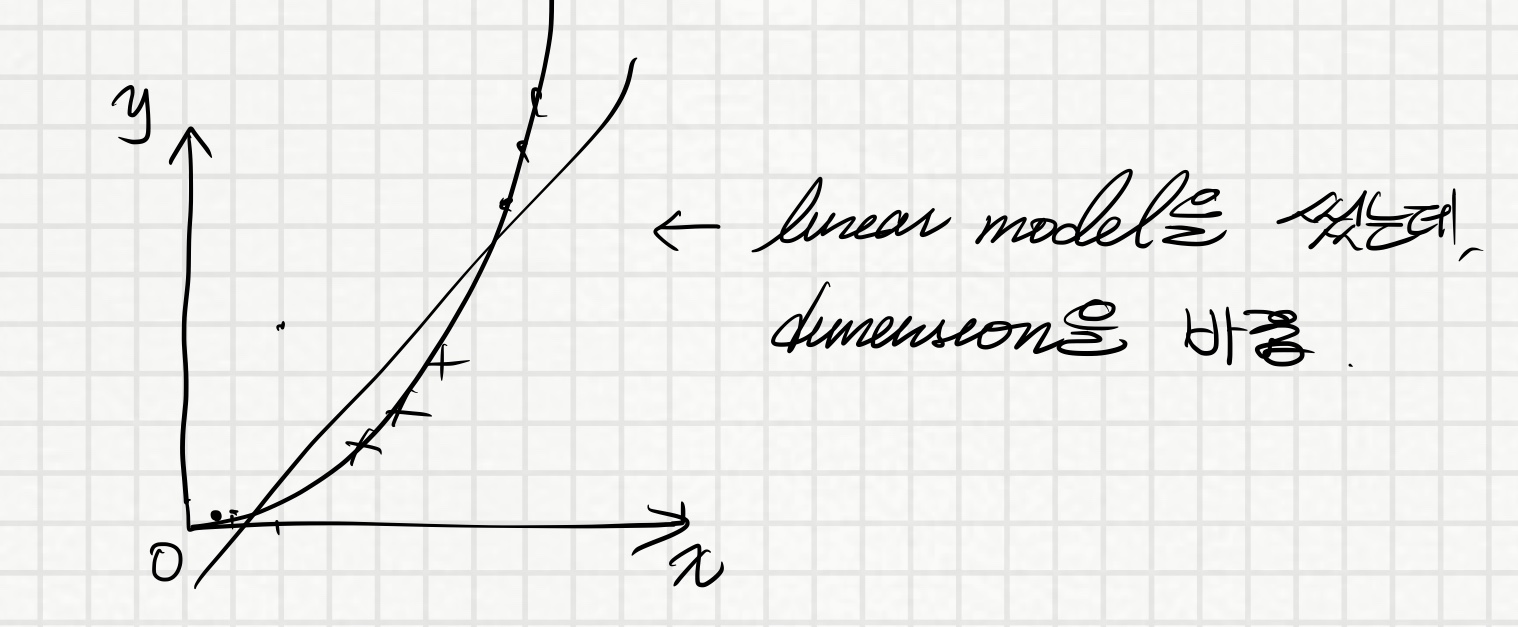 y
← linear model을 썼는데,
dimension을 바꿈.
O
x